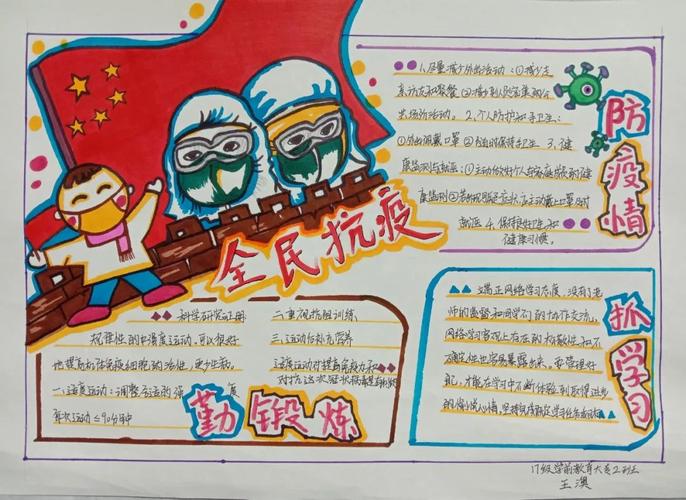 全民抗疫
1.尽量减少外出活动:①减少走
亲访友和聚餐②减少到人员密集的公
共场所活动。2.个人防护和手卫生:
①外出佩戴口罩 ②随时保持手卫生 3.健
康监测与就医:①主动做好个人与家庭成员的健
康监测②若出现可疑症状应主动戴上口罩及时
就医 4.保持良好卫生和
健康习惯。
防疫情
科学研究证明
规律性的中等度运动,可以很好
地提高机体免疫细胞的活性,更少生病。
一、适度运动:调整运动的强度
每次运动≤90分钟
二、重视抗阻训练
三、运动后补充营养
适度运动对提高免疫力和
勤锻炼
端正网络学习态度,没有了老
师的监督和同学们的协作交流,
网络学习客观上存在的
确定性也容易暴露出来。要管理好自
己,才能在学习中不断体验到取得进步
抓学习
17级学前教育大专2班
王澳